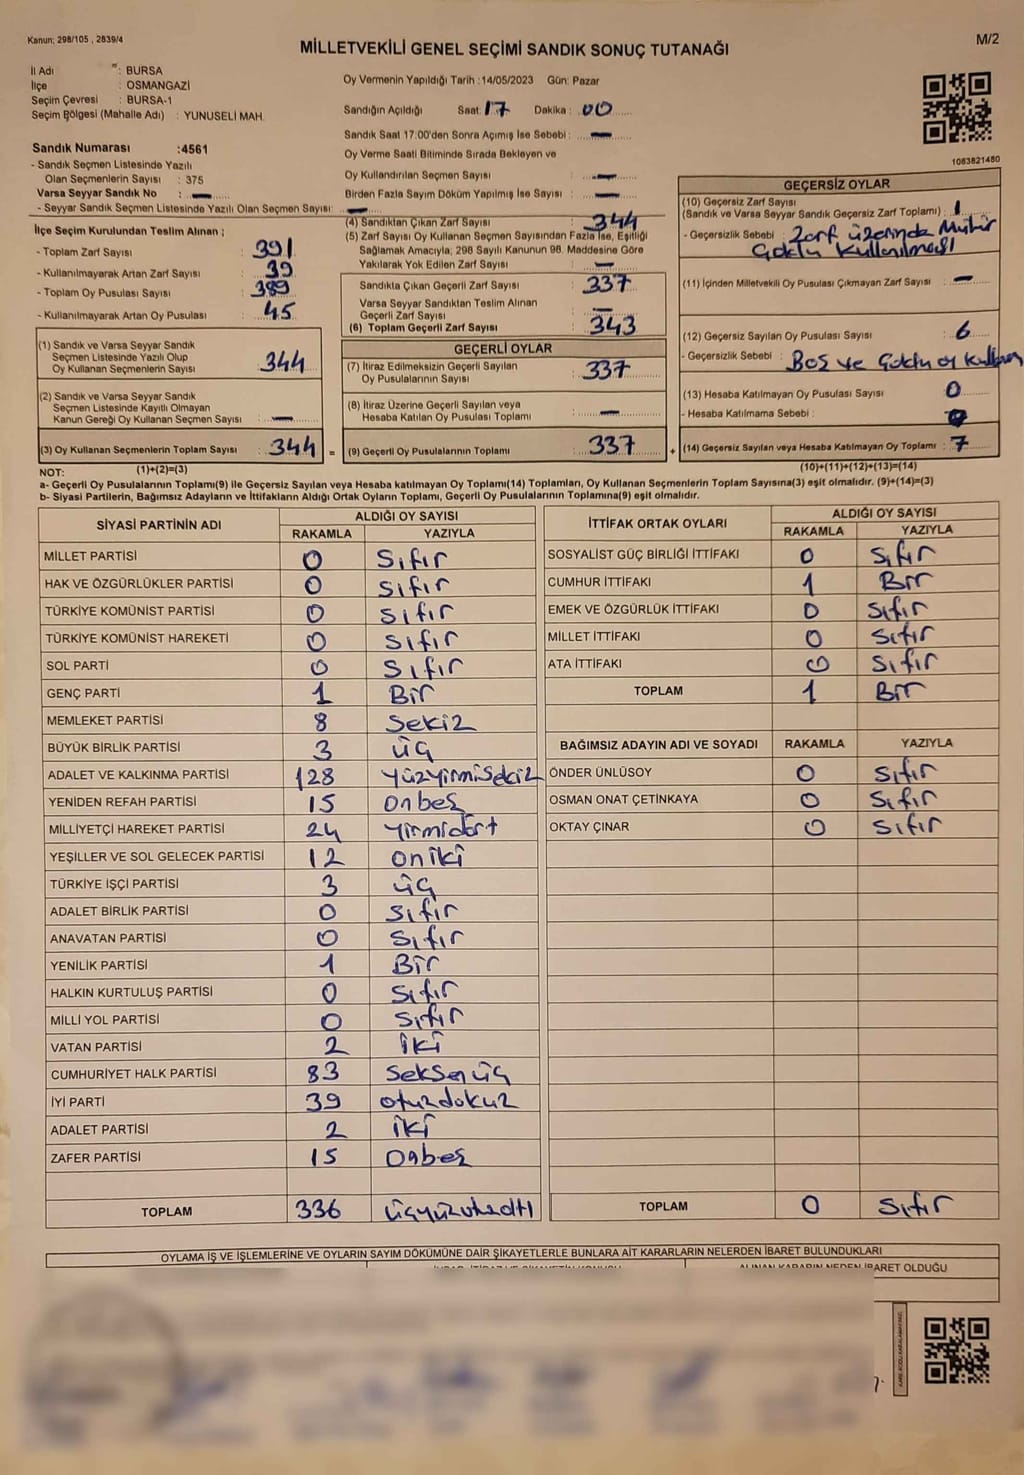 Kanun: 298/105 , 2839/4
M/2
MİLLETVEKİLİ GENEL SEÇİMİ SANDIK SONUÇ TUTANAĞI
İl Adı : BURSA
İlçe : OSMANGAZİ
Seçim Çevresi : BURSA-1
Seçim Bölgesi (Mahalle Adı) : YUNUSELİ MAH.
Sandık Numarası :4561
- Sandık Seçmen Listesinde Yazılı
Olan Seçmenlerin Sayısı : 375
Varsa Seyyar Sandık No : —
- Seyyar Sandık Seçmen Listesinde Yazılı Olan Seçmen Sayısı: —
İlçe Seçim Kurulundan Teslim Alınan ;
- Toplam Zarf Sayısı : 391
- Kullanılmayarak Artan Zarf Sayısı : 39
- Toplam Oy Pusulası Sayısı : 389
- Kullanılmayarak Artan Oy Pusulası : 45
(1) Sandık ve Varsa Seyyar Sandık
Seçmen Listesinde Yazılı Olup
Oy Kullanan Seçmenlerin Sayısı : 344
(2) Sandık ve Varsa Seyyar Sandık
Seçmen Listesinde Kayıtlı Olmayan
Kanun Gereği Oy Kullanan Seçmen Sayısı : —
(3) Oy Kullanan Seçmenlerin Toplam Sayısı : 344 =
Oy Vermenin Yapıldığı Tarih : 14/05/2023 Gün: Pazar
Sandığın Açıldığı Saat: 17 Dakika : 00
Sandık Saat 17:00'den Sonra Açımış İse Sebebi : —
Oy Verme Saati Bitiminde Sırada Bekleyen ve
Oy Kullandırılan Seçmen Sayısı : —
Birden Fazla Sayım Döküm Yapılmış İse Sayısı : —
(4) Sandıktan Çıkan Zarf Sayısı : 344
(5) Zarf Sayısı Oy Kullanan Seçmen Sayısından Fazla İse, Eşitliği
Sağlamak Amacıyla, 298 Sayılı Kanunun 98. Maddesine Göre
Yakılarak Yok Edilen Zarf Sayısı : —
Sandıkta Çıkan Geçerli Zarf Sayısı : 337
Varsa Seyyar Sandıktan Teslim Alınan
Geçerli Zarf Sayısı : —
(6) Toplam Geçerli Zarf Sayısı : 343
GEÇERLİ OYLAR
(7) İtiraz Edilmeksizin Geçerli Sayılan
Oy Pusulalarının Sayısı : 337
(8) İtiraz Üzerine Geçerli Sayılan veya
Hesaba Katılan Oy Pusulası Toplamı : —
(9) Geçerli Oy Pusulalarının Toplamı : 337 +
1063821480
GEÇERSİZ OYLAR
(10) Geçersiz Zarf Sayısı
(Sandık ve Varsa Seyyar Sandık Geçersiz Zarf Toplamı) : 1
- Geçersizlik Sebebi : Zarf üzerinde Mühür
Çoklu Kullanılması
(11) İçinden Milletvekili Oy Pusulası Çıkmayan Zarf Sayısı : —
(12) Geçersiz Sayılan Oy Pusulası Sayısı : 6
- Geçersizlik Sebebi : Boş ve Çoklu oy
(13) Hesaba Katılmayan Oy Pusulası Sayısı : 0
- Hesaba Katılmama Sebebi : 0
(14) Geçersiz Sayılan veya Hesaba Katılmayan Oy Toplamı : 7
NOT: (1)+(2)=(3) (10)+(11)+(12)+(13)=(14)
a- Geçerli Oy Pusulalarının Toplamı(9) ile Geçersiz Sayılan veya Hesaba katılmayan Oy Toplamı(14) Toplamları, Oy Kullanan Seçmenlerin Toplam Sayısına(3) eşit olmalıdır. (9)+(14)=(3)
b- Siyasi Partilerin, Bağımsız Adayların ve İttifakların Aldığı Ortak Oyların Toplamı, Geçerli Oy Pusulalarının Toplamına(9) eşit olmalıdır.
SİYASİ PARTİNİN ADI ALDIĞI OY SAYISI
RAKAMLA YAZIYLA
MİLLET PARTİSİ 0 Sıfır
HAK VE ÖZGÜRLÜKLER PARTİSİ 0 Sıfır
TÜRKİYE KOMÜNİST PARTİSİ 0 Sıfır
TÜRKİYE KOMÜNİST HAREKETİ 0 Sıfır
SOL PARTİ 0 Sıfır
GENÇ PARTİ 1 Bir
MEMLEKET PARTİSİ 8 Sekiz
BÜYÜK BİRLİK PARTİSİ 3 üç
ADALET VE KALKINMA PARTİSİ 128 yüzyirmisekiz
YENİDEN REFAH PARTİSİ 15 onbeş
MİLLİYETÇİ HAREKET PARTİSİ 24 yirmidört
YEŞİLLER VE SOL GELECEK PARTİSİ 12 oniki
TÜRKİYE İŞÇİ PARTİSİ 3 üç
ADALET BİRLİK PARTİSİ 0 Sıfır
ANAVATAN PARTİSİ 0 Sıfır
YENİLİK PARTİSİ 1 Bir
HALKIN KURTULUŞ PARTİSİ 0 Sıfır
MİLLİ YOL PARTİSİ 0 Sıfır
VATAN PARTİSİ 2 iki
CUMHURİYET HALK PARTİSİ 83 Seksenüç
İYİ PARTİ 39 otuzdokuz
ADALET PARTİSİ 2 iki
ZAFER PARTİSİ 15 Onbeş
TOPLAM 336 üçyüzotuzaltı
İTTİFAK ORTAK OYLARI ALDIĞI OY SAYISI
RAKAMLA YAZIYLA
SOSYALİST GÜÇ BİRLİĞİ İTTİFAKI 0 Sıfır
CUMHUR İTTİFAKI 1 Bir
EMEK VE ÖZGÜRLÜK İTTİFAKI 0 Sıfır
MİLLET İTTİFAKI 0 Sıfır
ATA İTTİFAKI 0 Sıfır
TOPLAM 1 Bir
BAĞIMSIZ ADAYIN ADI VE SOYADI RAKAMLA YAZIYLA
ÖNDER ÜNLÜSOY 0 Sıfır
OSMAN ONAT ÇETİNKAYA 0 Sıfır
OKTAY ÇINAR 0 Sıfır
TOPLAM 0 Sıfır
OYLAMA İŞ VE İŞLEMLERİNE VE OYLARIN SAYIM DÖKÜMÜNE DAİR ŞİKAYETLERLE BUNLARA AİT KARARLARIN NELERDEN İBARET BULUNDUKLARI
ALINAN KARARIN NEDEN İBARET OLDUĞU